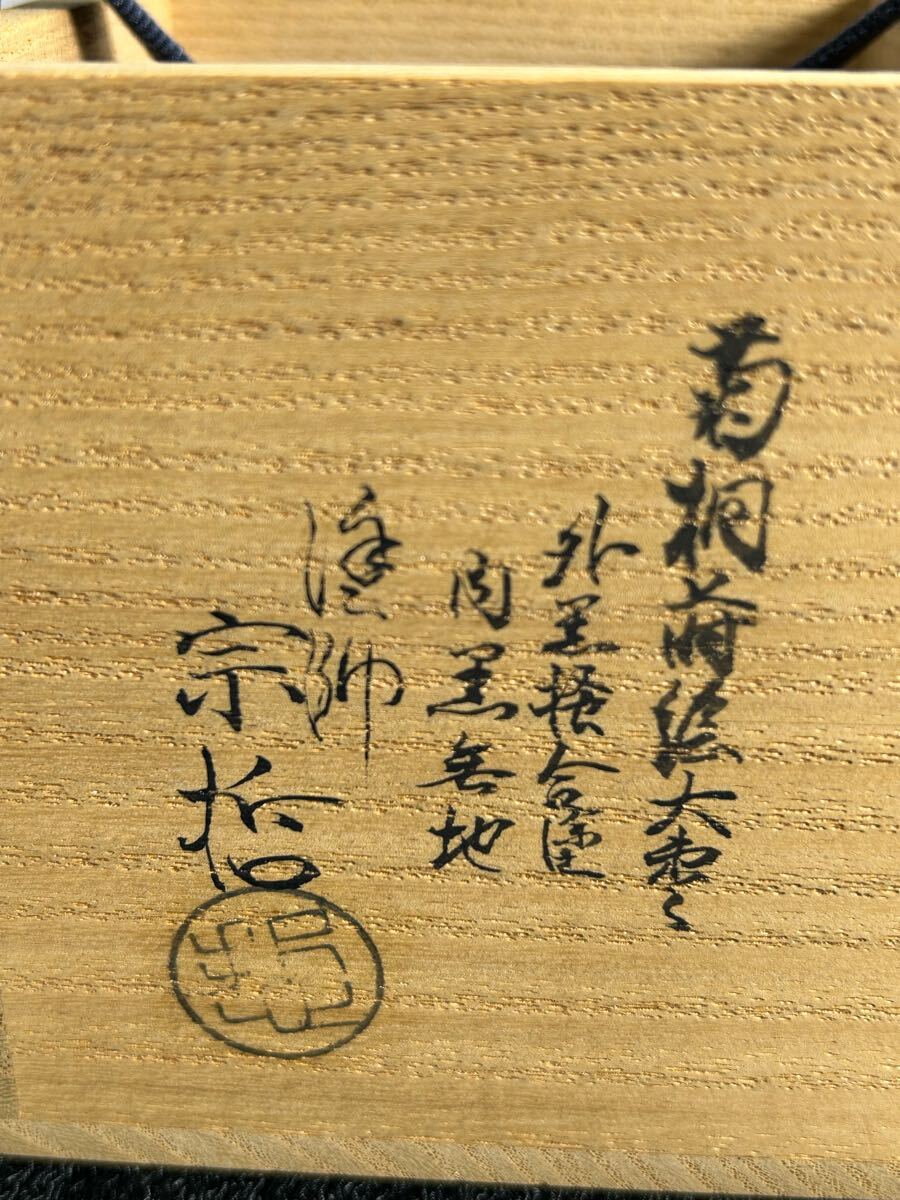 菊桐蒔絵大棗
外黒掻合塗
内黒無地
塗師
宗哲